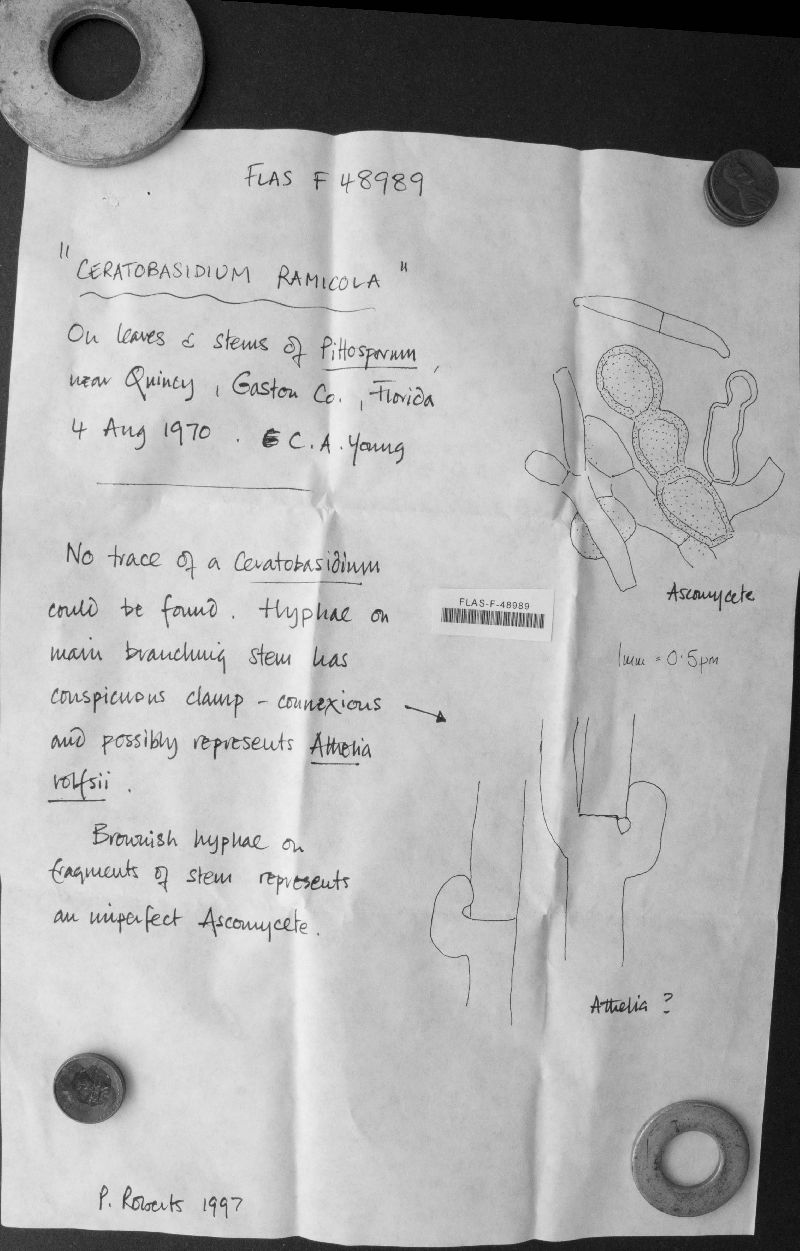 FLAS F 48989
"CERATOBASIDIUM RAMICOLA"
On leaves & stems of Pittosporum,
near Quincy, Gaston Co., Florida
4 Aug 1970. C. A. Young
No trace of a Ceratobasidium
could be found. Hyphae on
main branching stem has
conspicuous clamp-connexions
and possibly represents Athelia
rolfsii.
Brownish hyphae on
fragments of stem represents
an imperfect Ascomycete.
P. Roberts 1997
Ascomycete
FLAS-F-48989
1mm = 0.5µm
Athelia ?